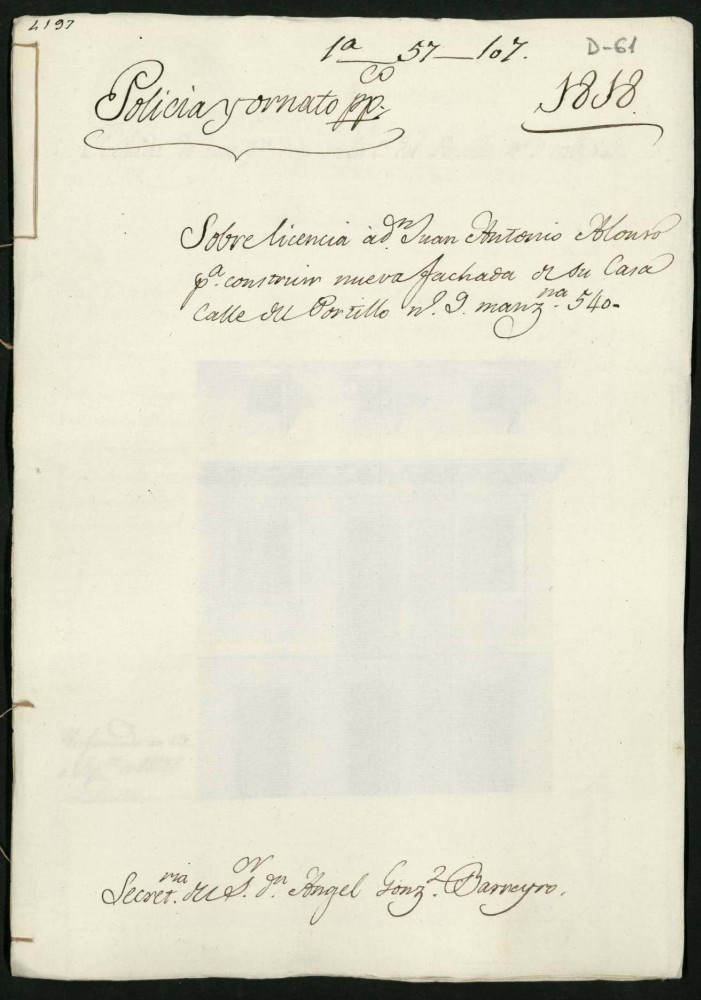 4197
1ª 57-107.
D-61
Policia y ornato pp.co
1818
Sobre licencia à dn. Juan Antonio Alonso
pª. construir nueva fachada de su Casa
Calle del Portillo nº. 9. manzna. 540-
Secretria. del Sor. dn. Angel Gonzz. Barreyro.